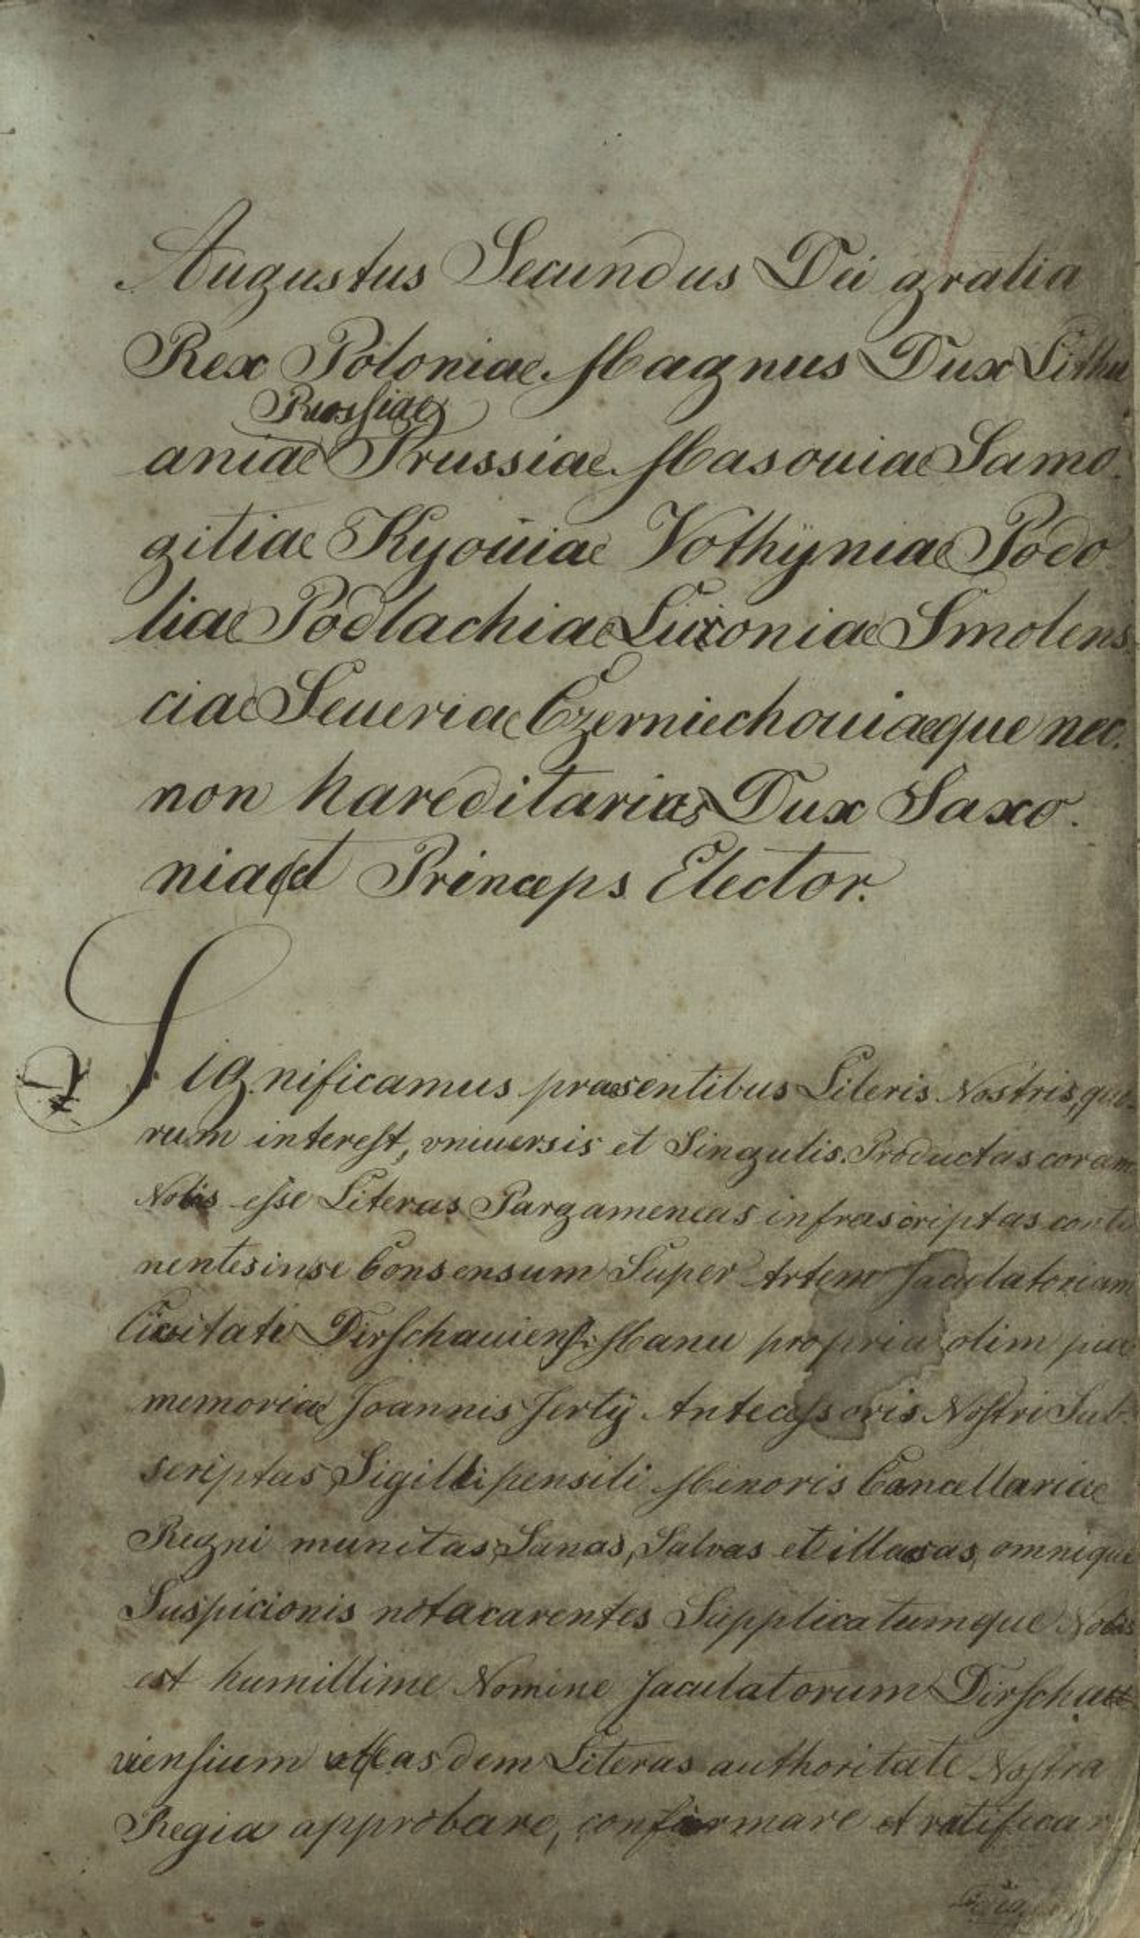 Augustus Secundus Dei gratia
Rex Poloniae Magnus Dux Lithu
Russiae
aniae Prussiae Masouiae Samo.
gitiae Kyouiae Volhÿniae Podo
liae Podlachiae Liuoniae Smolens
ciae Seueriae Czerniechouiaeque nec.
non haereditarius Dux Saxo.
niae et Princeps Elector.
Significamus praesentibus Literis Nostris, quo
rum interest, vniuersis et Singulis. Productas coram
Nobis esse Literas Pargameneas infrascriptas conti
nentes in se Consensum Super Artem Jaculatoriam
Ciuitati Dirschauiensi Manu propria olim piae
memoriae Joannis Tertÿ Antecessoris Nostri Sub
scriptas Sigilli pensili Minoris Cancellariae
Regni munitas Sanas, Salvas et illaesas, omnique
Suspicionis nota carentes Supplicatumque Nobis
est humillime Nomine Jaculatorum Dirschau
viensium vt easdem Literas authoritate Nostra
Regia approbare, confirmare et ratificar